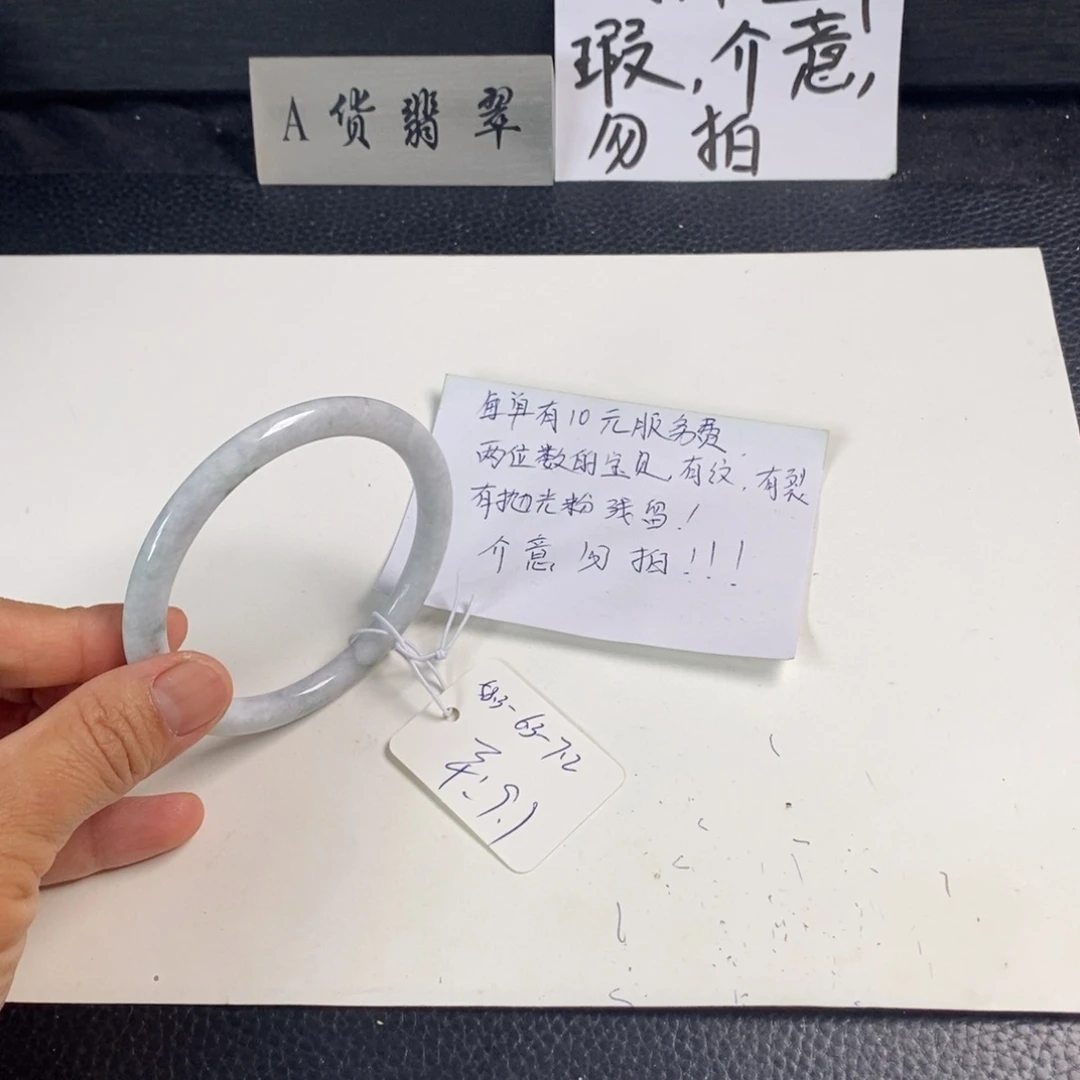 A货翡翠
瑕,介意,
勿拍
每单有10元服务费
两位数的宝贝,有纹,有裂
有抛光粉残留!
介意勿拍!!!
58.3-63-7.2